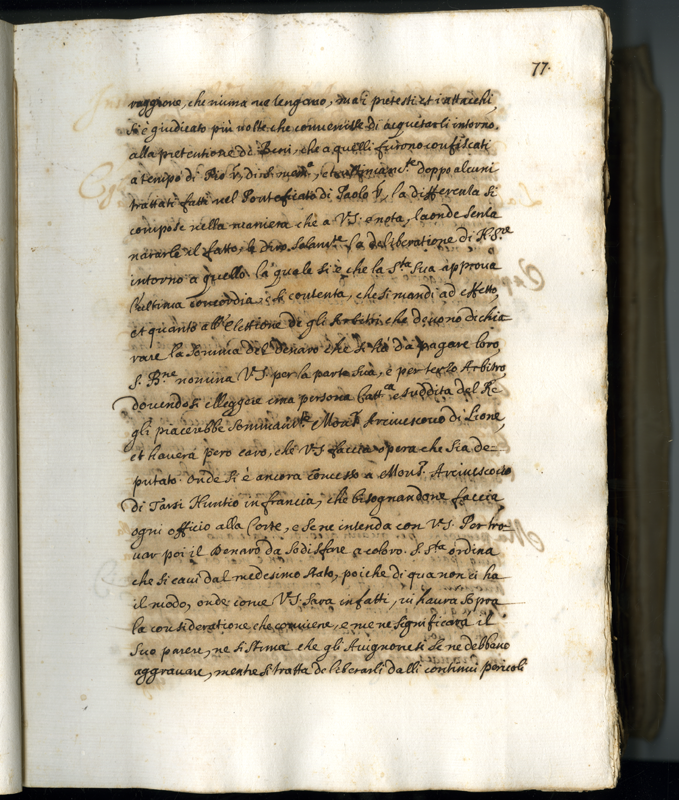 77.
raggione, che niuna ne tengano, mà i pretesti et i attacchi,
si è giudicato più volte che convenisse di acquetarli intorno
alla pretentione de Beni, che a quelli furono confiscati
a tempo di Pio V, di doppo alcuni
trattati fatti nel Pontificato di Paolo V, la differenza si
compose nella maniera che a V.S. è nota, laonde senza
narrarle il fatto, le diro solam.te la deliberatione di N. S.re
intorno a quello la quale si è che la S.ta Sua approva
l'ultima concordia, e si contenta, che si mandi ad effetto,
et quanto all' Elettione de gli Arbitri che devono dichia-
rare la somma del denaro che si hà da pagare loro,
S. B.ne nomina V.S. per la parte sua, e per terzo Arbitro
dovendosi elleggere una persona Catt.ca e suddita del Re
gli piacerebbe sommam.te Mons.r Arcivescovo di Lione,
et haverà pero caro, che V.S. faccia opera che sia de-
putato. onde si è ancora concesso a Mons.r Arcivescovo
di Tarsi Nuntio in francia, che bisognandone faccia
ogni officio alla Corte, e se ne intenda con V.S. Per tro-
var poi il Denaro da sodisfare a coloro. S. S.ta ordina
che si cavi dal medesimo stato, poiche di qua non ci ha
il modo, onde come V.S. sara in fatti, vi haura sopra
la consideratione che conviene, e me ne significarà il
suo parere, ne si stima che gli Avignonesi se ne debbano
aggravare, mentre si tratta de liberarli dalli continui pericoli